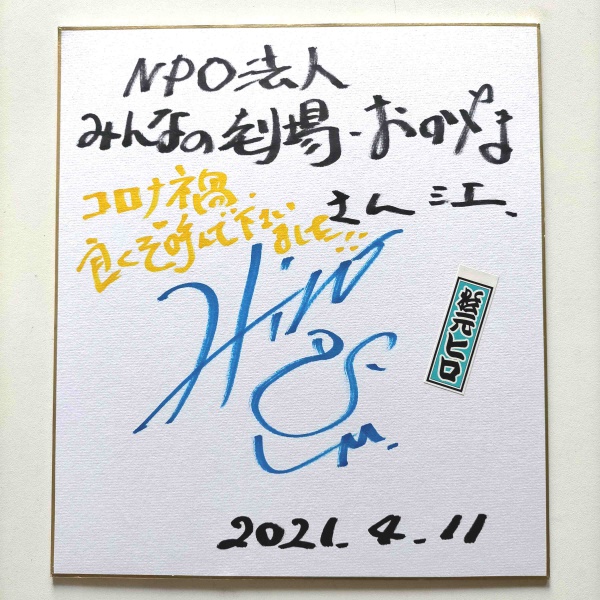 NPO法人
みんなの劇場・おかやま
さん江、
コロナ禍、
良くぞ呼んで下さい
ました!!
松元ヒロ
2021.4.11